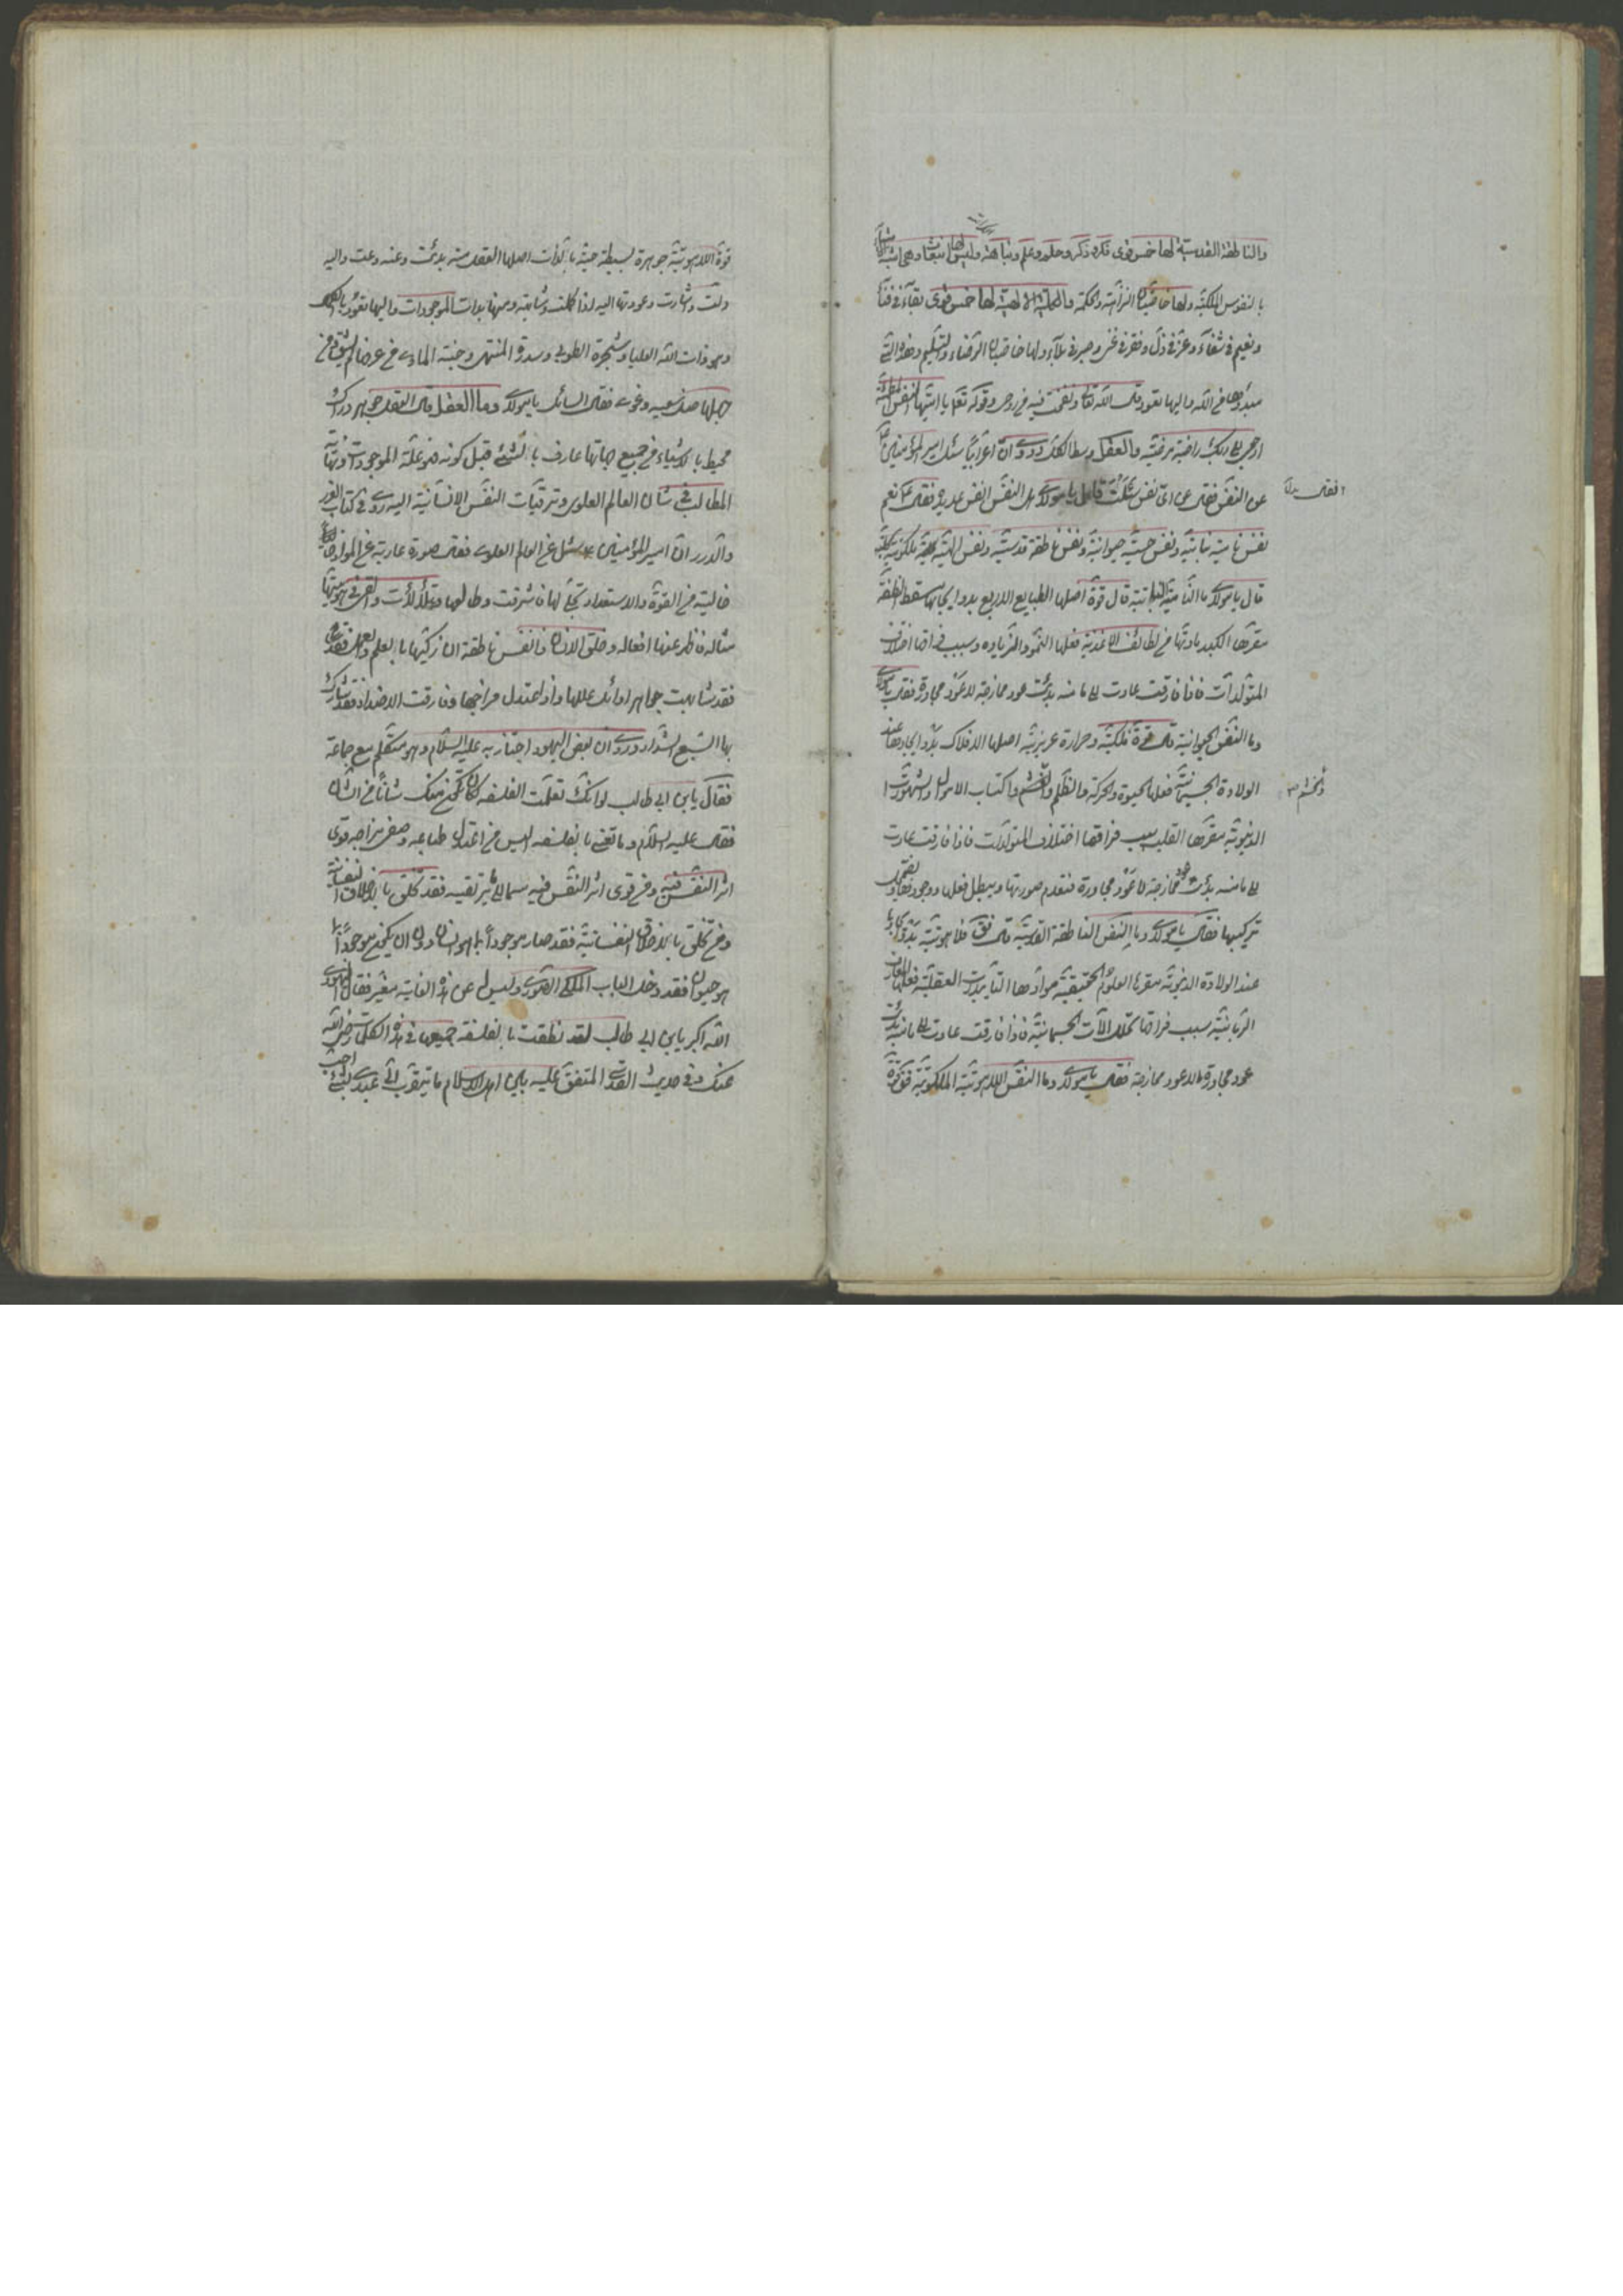 والناطقة القدسية لها خمس قوى فكر وذكر وحلم وعلم ونباهة وليس لها انبعاث وهى اشبه الاشياء
بالنفوس الملكية ولها خاصيتان النزاهة والحكمة والكلية الالهية لها خمس قوى بقاء فى فناء
ونعيم فى شقاء وعز فى ذل وفقر فى غنى وصبر فى بلاء ولها خاصيتان الرضاء والتسليم وهذه التى
مبدؤها من الله واليها تعود قال الله تعالى ونفخت فيه من روحى وقوله تعالى يا ايتها النفس المطمئنة
ارجعى الى ربك راضية مرضية والعقل وسط الكل وروى ان اعرابياً سئل امير المؤمنين
عن النفس فقال عن اى نفس تسئل قال يا مولاى هل النفس انفس عديدة فقال نعم
نفس نامية نباتية ونفس حسية حيوانية ونفس ناطقة قدسية ونفس الهية كلية ملكوتية
قال يا مولاى ما النامية النباتية قال قوة اصلها الطبايع الاربع بدو ايجادها مسقط النطفة
مقرها الكبد مادتها من لطائف الاغذية فعلها النمو والزيادة وسبب فراقها اختلاف
المتولدات فاذا فارقت عادت الى ما منه بدئت عود ممازجة لا عود مجاورة فقال يا مولاى
وما النفس الحيوانية قال قوة فلكية وحرارة غريزية اصلها الافلاك بدو ايجادها عند
الولادة الجسمانية فعلها الحيوة والحركة والظلم والغشم واكتساب الاموال والشهوات
الدنيوية مقرها القلب سبب فراقها اختلاف المتولدات فاذا فارقت عادت
الى ما منه بدئت عود ممازجة لا عود مجاورة فتعدم صورتها ويبطل فعلها ووجودها ويضمحل
تركيبها فقال يا مولاى وما النفس الناطقة القدسية قال قوة لاهوتية بدو ايجادها
عند الولادة الدنيوية مقرها العلوم الحقيقية موادها التأييدات العقلية فعلها المعارف
الربانية سبب فراقها تحلل الآلات الجسمانية فاذا فارقت عادت الى ما منه بدئت
عود مجاورة لا عود ممازجة فقال يا مولاى وما النفس اللاهوتية الملكوتية فقال
فقال
والغشم
قوة لاهوتية جوهرة بسيطة حية بالذات اصلها العقل منه بدئت وعنه وعت واليه
دلت واشارت وعودتها اليه اذا كملت وشابهته ومنها بدات الموجودات واليها تعود بالكمال
وهو ذات الله العليا وشجرة الطوبى وسدرة المنتهى وجنة المأوى من عرفها لم يشق ومن
جهلها ضل سعيه وغوى فقال السائل يا مولاى وما العقل قال العقل جوهر دراك
محيط بالاشياء من جميع جهاتها عارف بالشئ قبل كونه فهو علة الموجودات ونهاية
المطالب فى شأن العالم العلوى وترقيات النفس الانسانية اليه روى فى كتاب الغرر
والدرر ان امير المؤمنين سئل عن العالم العلوى فقال صورة عارية عن المواد
خالية من القوة والاستعداد تجلى لها فاشرقت وطالعها فتلألأت والقى فى هويتها
مثاله فاظهر عنها افعاله وخلق الانسان ذا نفس ناطقة ان زكيها بالعلم والعمل
فقد شابهت جواهر اوائل عللها واذا اعتدل مزاجها وفارقت الاضداد فقد شارك
بها السبع الشداد وروى ان بعض اليهود اجتاز به عليه السلام وهو يتكلم مع جماعة
فقال يابن ابى طالب لو انك تعلمت الفلسفة لكان يكون منك شأناً من الشان
فقال عليه السلام وما تعنى بالفلسفة اليس من اعتدل طباعه وصفى مزاجه قوى
اثر النفس فيه ومن قوى اثر النفس فيه سما الى ما يرتقيه فقد تخلق بالاخلاق النفسانية
ومن تخلق بالاخلاق النفسانية فقد صار موجوداً بما هو انسان دون ان يكون موجوداً بما
هو حيوان فقد دخل الباب الملكى الصورى وليس له عن هذه الغاية مغير فقال اليهودى
الله اكبر يابن ابى طالب لقد نطقت بالفلسفة جميعها فى هذه الكلمات رضى الله
عنك وفى حديث القدسى المتفق عليه بين اهل الاسلام ما يتقرب الى عبدى بشئ احب